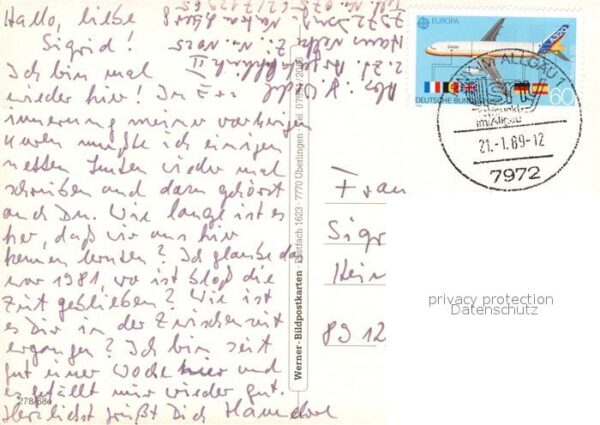 Hallo, liebe
Sigrid!
Ich bin mal
wieder hier! In Er-
innerung meiner vorherigen
Kuren mußte ich einigen
netten Leuten wieder mal
schreiben und dazu gehörst
auch Du. Wie lange ist es
her, daß wir uns hier
kennen lernten? Ich glaube das
war 1981, wo ist bloß die
Zeit geblieben? Wie ist
es Dir in der Zwischenzeit
ergangen? Ich bin seit
gut einer Woche hier und
es gefällt mir wieder gut.
Herzlichst grüßt Dich
278/684
7972
Werner-Bildpostkarten · Postfach 1623 · 7770 Überlingen · Tel.
EUROPA
DEUTSCHE BUNDES
60
ALLGÄU 1
ISNY
im Allgäu
21.-1.89-12
7972
Frau
Sigr
Hein
8912
privacy protection
Datenschutz